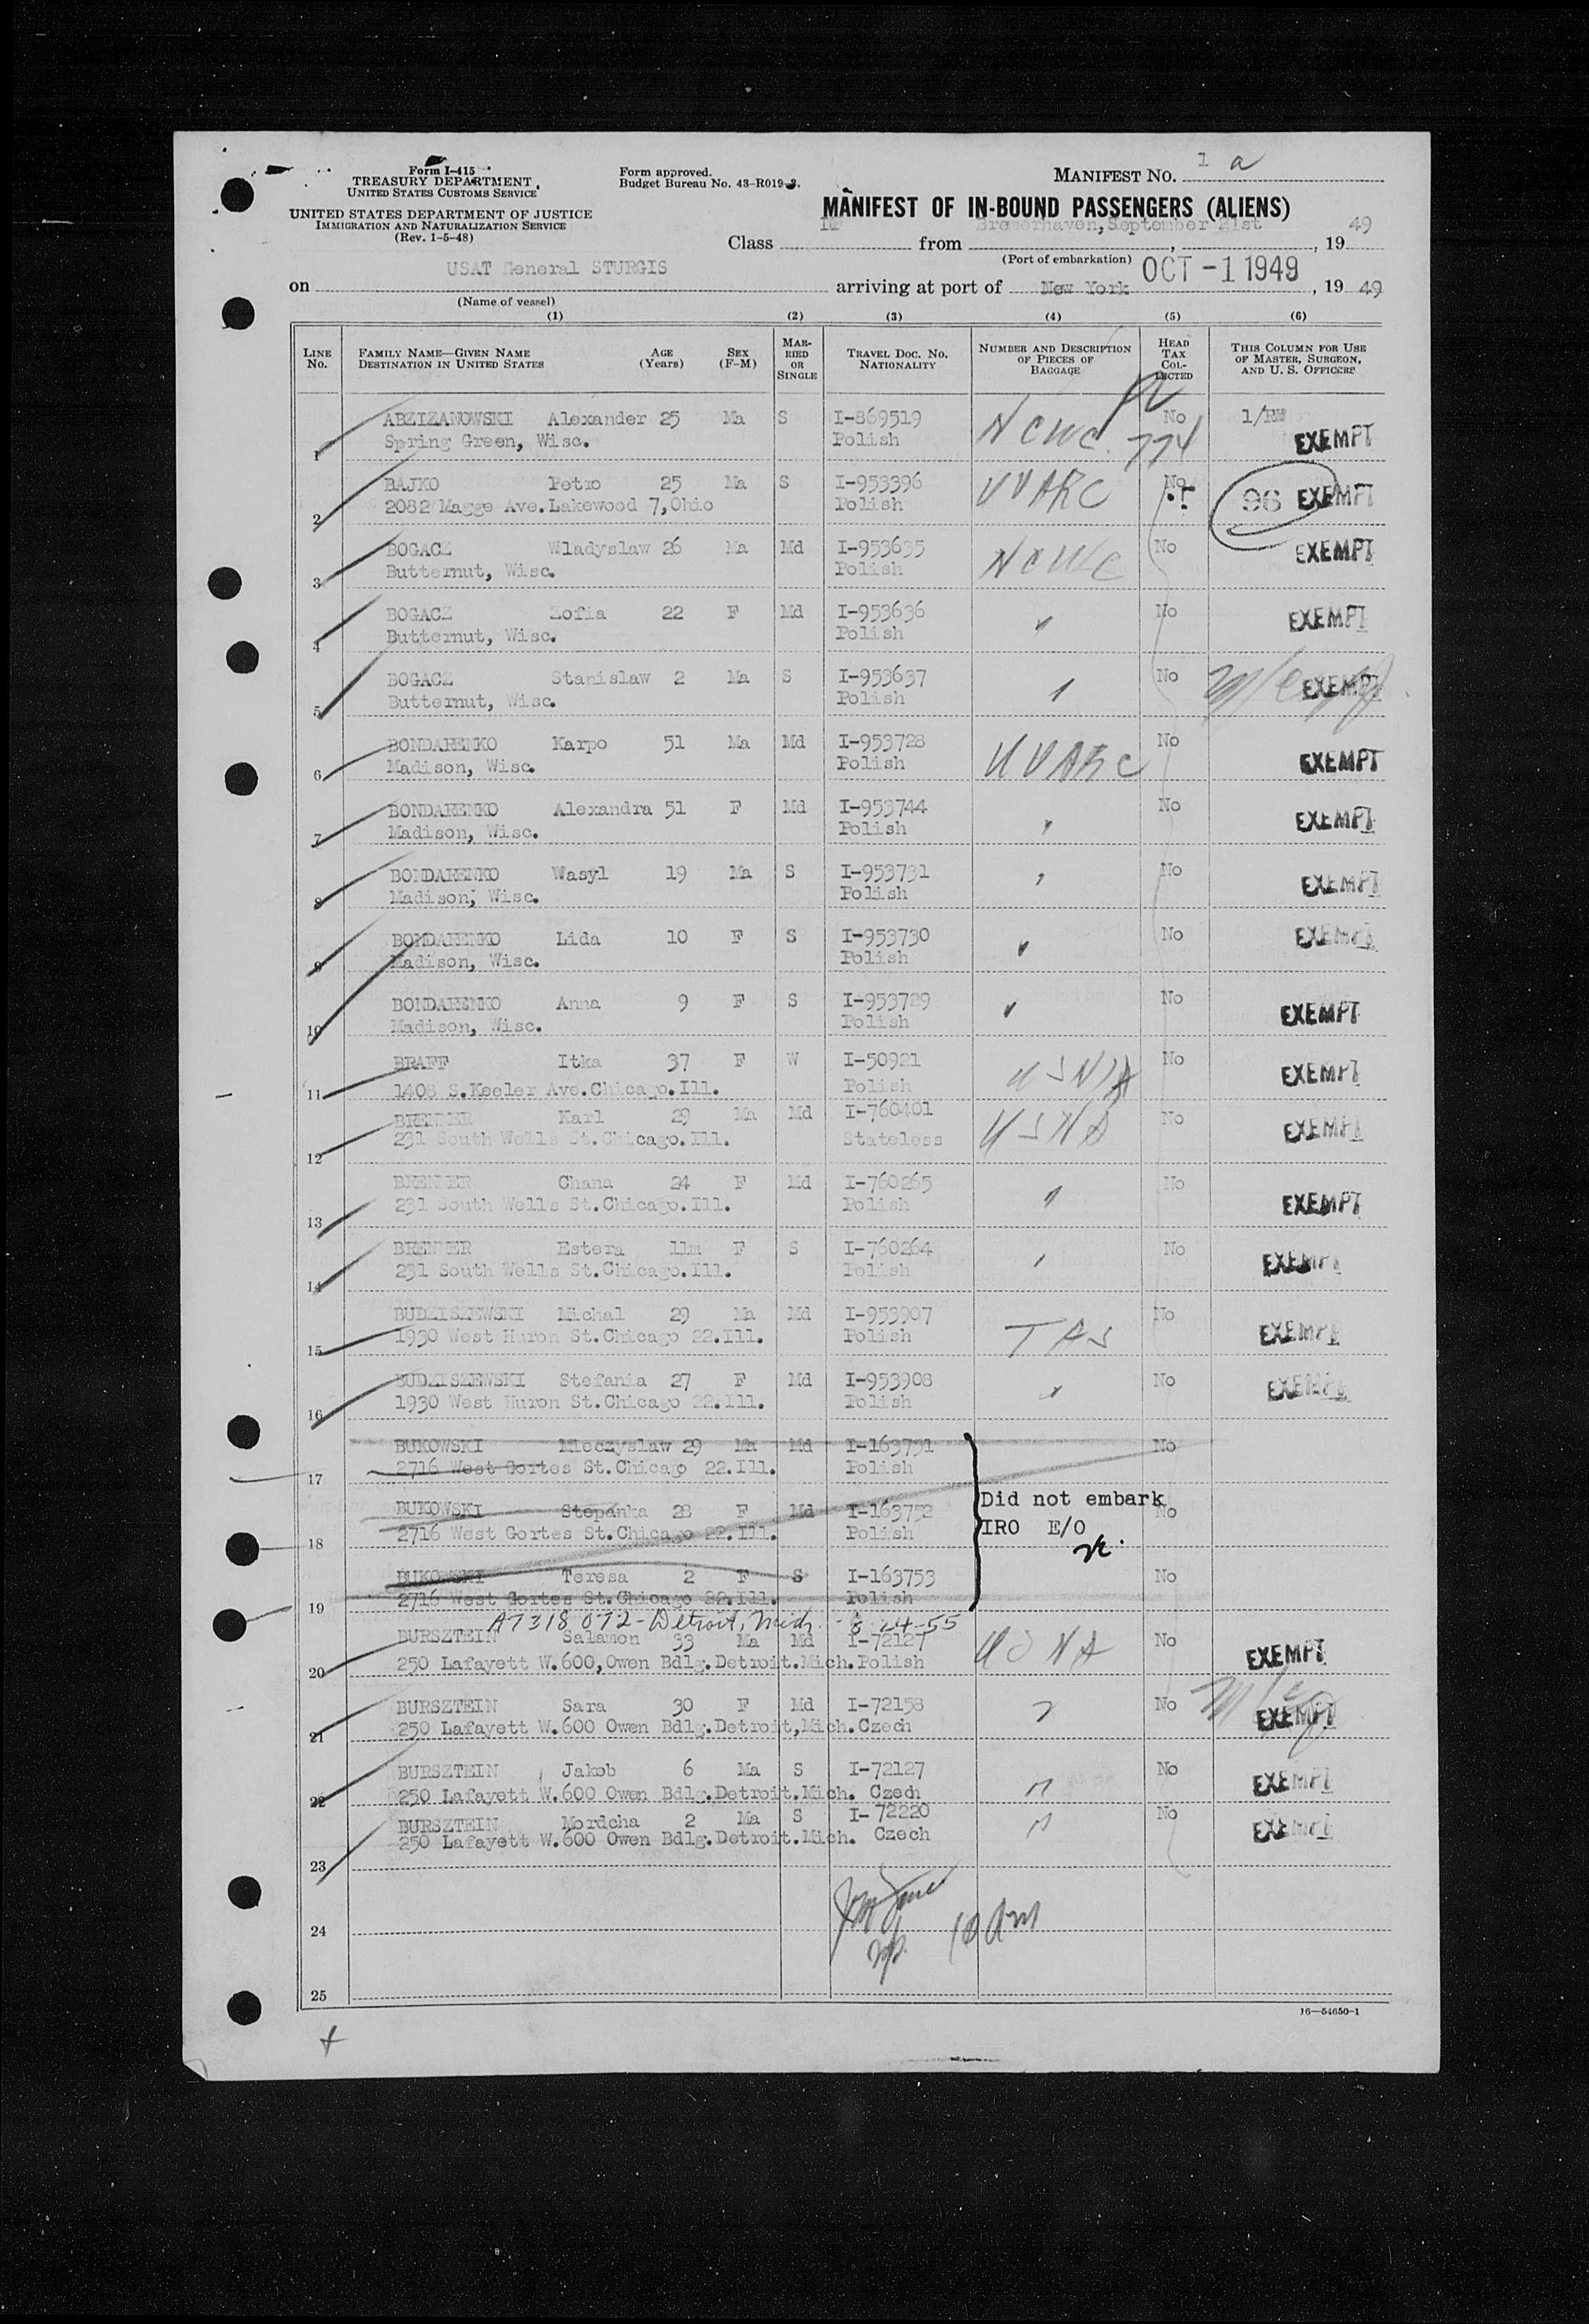 1 a
Form I-415
TREASURY DEPARTMENT
UNITED STATES CUSTOMS SERVICE
Form approved.
Budget Bureau No. 43-R019-3.
MANIFEST NO.
UNITED STATES DEPARTMENT OF JUSTICE
IMMIGRATION AND NATURALIZATION SERVICE
(Rev. 1-5-48)
MANIFEST OF IN-BOUND PASSENGERS (ALIENS)
Class DP from Bremerhaven, September 21st, 19 49
(Port of embarkation)
OCT -1 1949
on USAT General STURGIS arriving at port of New York, 19 49
(Name of vessel)
(1) (2) (3) (4) (5) (6)
LINE No. FAMILY NAME—GIVEN NAME DESTINATION IN UNITED STATES AGE (Years) SEX (F-M) MARRIED OR SINGLE TRAVEL DOC. NO. NATIONALITY NUMBER AND DESCRIPTION OF PIECES OF BAGGAGE HEAD TAX COLLECTED THIS COLUMN FOR USE OF MASTER, SURGEON, AND U. S. OFFICERS
ABZIZANOWSKI Alexander 25 Ma S I-869519 NCWC No 1/RW
1 Spring Green, Wisc. Polish 774 EXEMPT
BAJKO Petro 25 Ma S I-953396 UUARC No 96 EXEMPT
2 2082 Magge Ave. Lakewood 7, Ohio Polish
BOGACZ Wladyslaw 26 Ma Md I-953635 NCWC No EXEMPT
3 Butternut, Wisc. Polish
BOGACZ Zofia 22 F Md I-953636 " No EXEMPT
4 Butternut, Wisc. Polish
BOGACZ Stanislaw 2 Ma S I-953637 No EXEMPT
5 Butternut, Wisc. Polish
BONDARENKO Karpo 51 Ma Md I-953728 UUARC No EXEMPT
6 Madison, Wisc. Polish
BONDARENKO Alexandra 51 F Md I-953744 " No EXEMPT
7 Madison, Wisc. Polish
BONDARENKO Wasyl 19 Ma S I-953731 " No EXEMPT
8 Madison, Wisc. Polish
BONDARENKO Lida 10 F S I-953730 " No EXEMPT
9 Madison, Wisc. Polish
BONDARENKO Anna 9 F S I-953729 " No EXEMPT
10 Madison, Wisc. Polish
BRAFF Itka 37 F W I-50921 USNA No EXEMPT
11 1408 S. Keeler Ave. Chicago. Ill. Polish
BRENNER Karl 29 Ma Md I-760401 USNA No EXEMPT
12 231 South Wells St. Chicago. Ill. Stateless
BRENNER Chana 24 F Md I-760265 " No EXEMPT
13 231 South Wells St. Chicago. Ill. Polish
BRENNER Estera 11m F S I-760264 " No EXEMPT
14 231 South Wells St. Chicago. Ill. Polish
BUDZISZEWSKI Michal 29 Ma Md I-953907 No EXEMPT
15 1930 West Huron St. Chicago 22. Ill. Polish
BUDZISZEWSKI Stefania 27 F Md I-953908 " No EXEMPT
16 1930 West Huron St. Chicago 22. Ill. Polish
BUKOWSKI Mieczyslaw 29 Ma Md I-163751 No
17 2716 West Cortes St. Chicago 22. Ill. Polish
BUKOWSKI Stepanka 28 F Md I-163752 Did not embark No
18 2716 West Cortes St. Chicago 22. Ill. Polish IRO E/O
BUKOWSKI Teresa 2 F S I-163753 No
19 2716 West Cortes St. Chicago 22. Ill. Polish
A7318 072 - Detroit, Mich. - 8-24-55
BURSZTEIN Salamon 33 Ma Md I-72127 USNA No EXEMPT
20 250 Lafayett W. 600, Owen Bdlg. Detroit. Mich. Polish
BURSZTEIN Sara 30 F Md I-72158 " No EXEMPT
21 250 Lafayett W. 600 Owen Bdlg. Detroit, Mich. Czech
BURSZTEIN Jakob 6 Ma S I-72127 " No EXEMPT
22 250 Lafayett W. 600 Owen Bdlg. Detroit. Mich. Czech
BURSZTEIN Mordcha 2 Ma S I-72220 " No EXEMPT
250 Lafayett W. 600 Owen Bdlg. Detroit. Mich. Czech
23
24 10 AM
25
16—54650-1